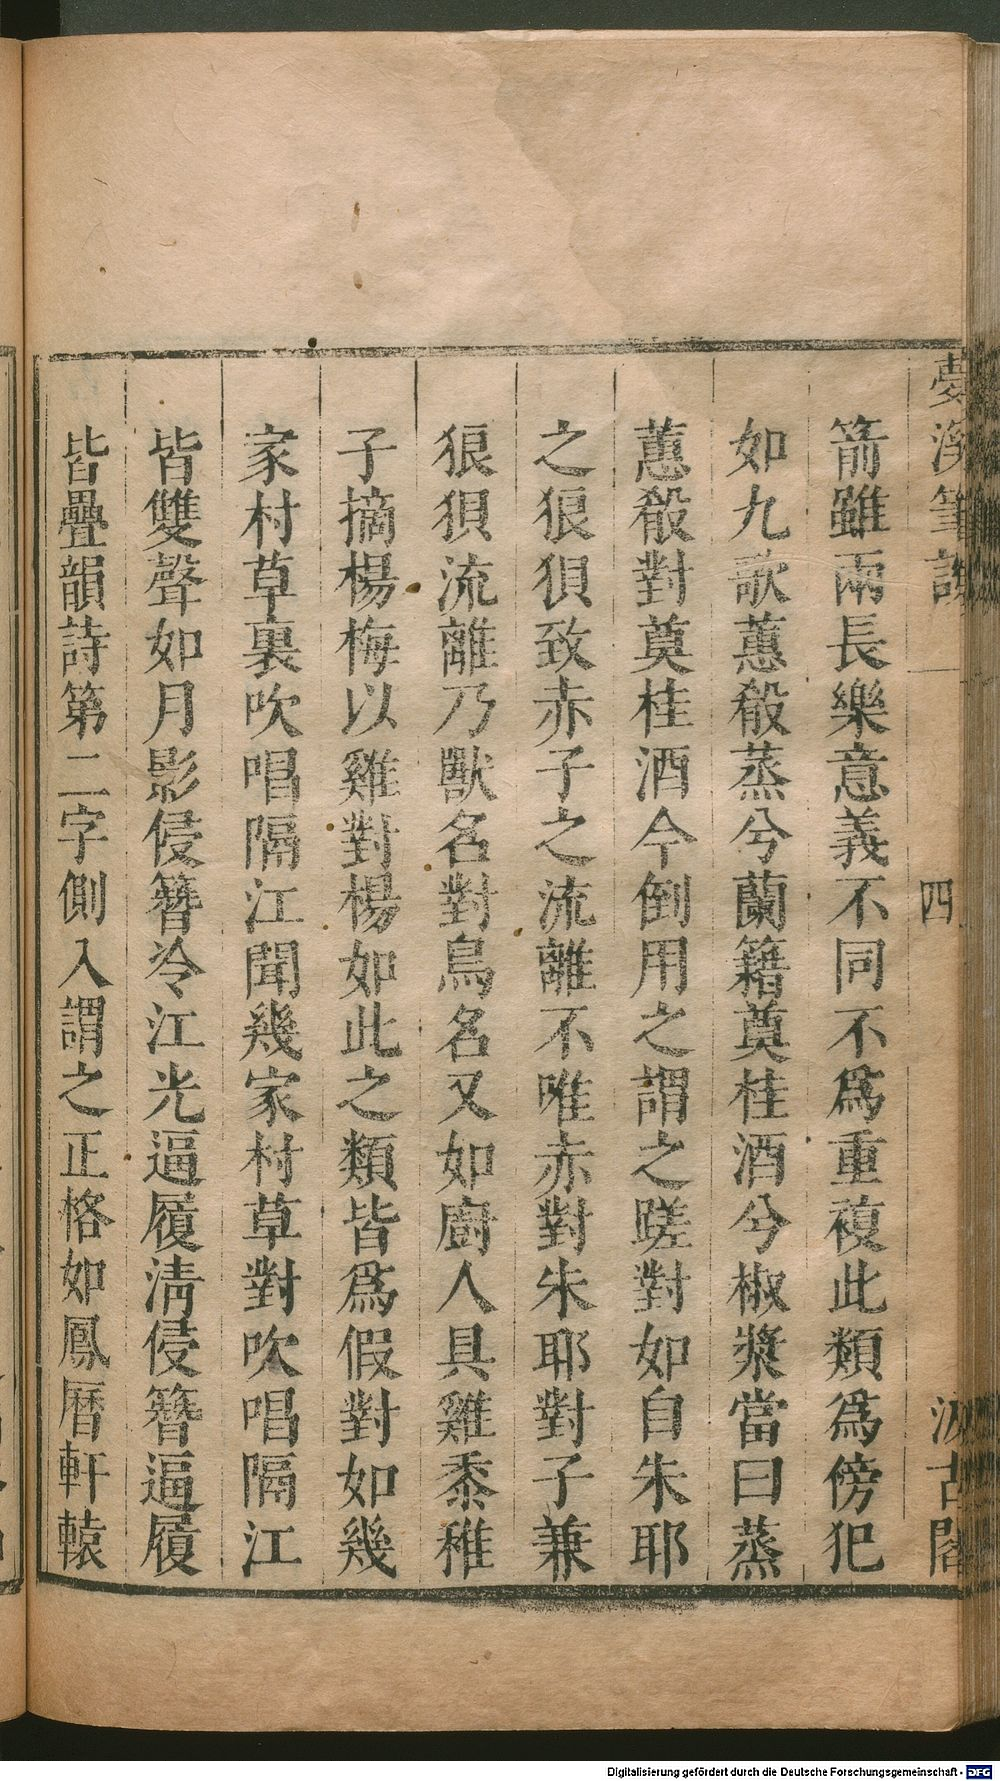 夢溪筆談 四 汲古閣
箭雖兩長樂意義不同不爲重複此類爲傍犯
如九歌蕙殽蒸兮蘭籍奠桂酒兮椒漿當曰蒸
蕙殽對奠桂酒今倒用之謂之蹉對如自朱耶
之狼狽致赤子之流離不唯赤對朱耶對子兼
狼狽流離乃獸名對鳥名又如廚人具雞黍稚
子摘楊梅以雞對楊如此之類皆爲假對如幾
家村草裏吹唱隔江聞幾家村草對吹唱隔江
皆雙聲如月影侵簪冷江光逼履清侵簪逼履
皆疊韻詩第二字側入謂之正格如鳳曆軒轅
Digitalisierung gefördert durch die Deutsche Forschungsgemeinschaft - DFG